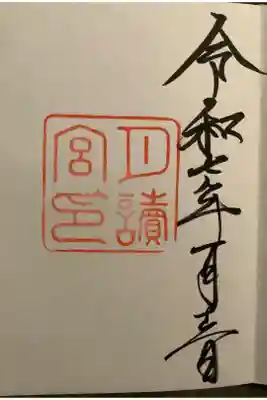 令和七年一月
月讀
宮印